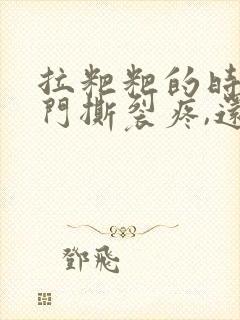 拉粑粑的時
門撕裂疼,還
鄧飛